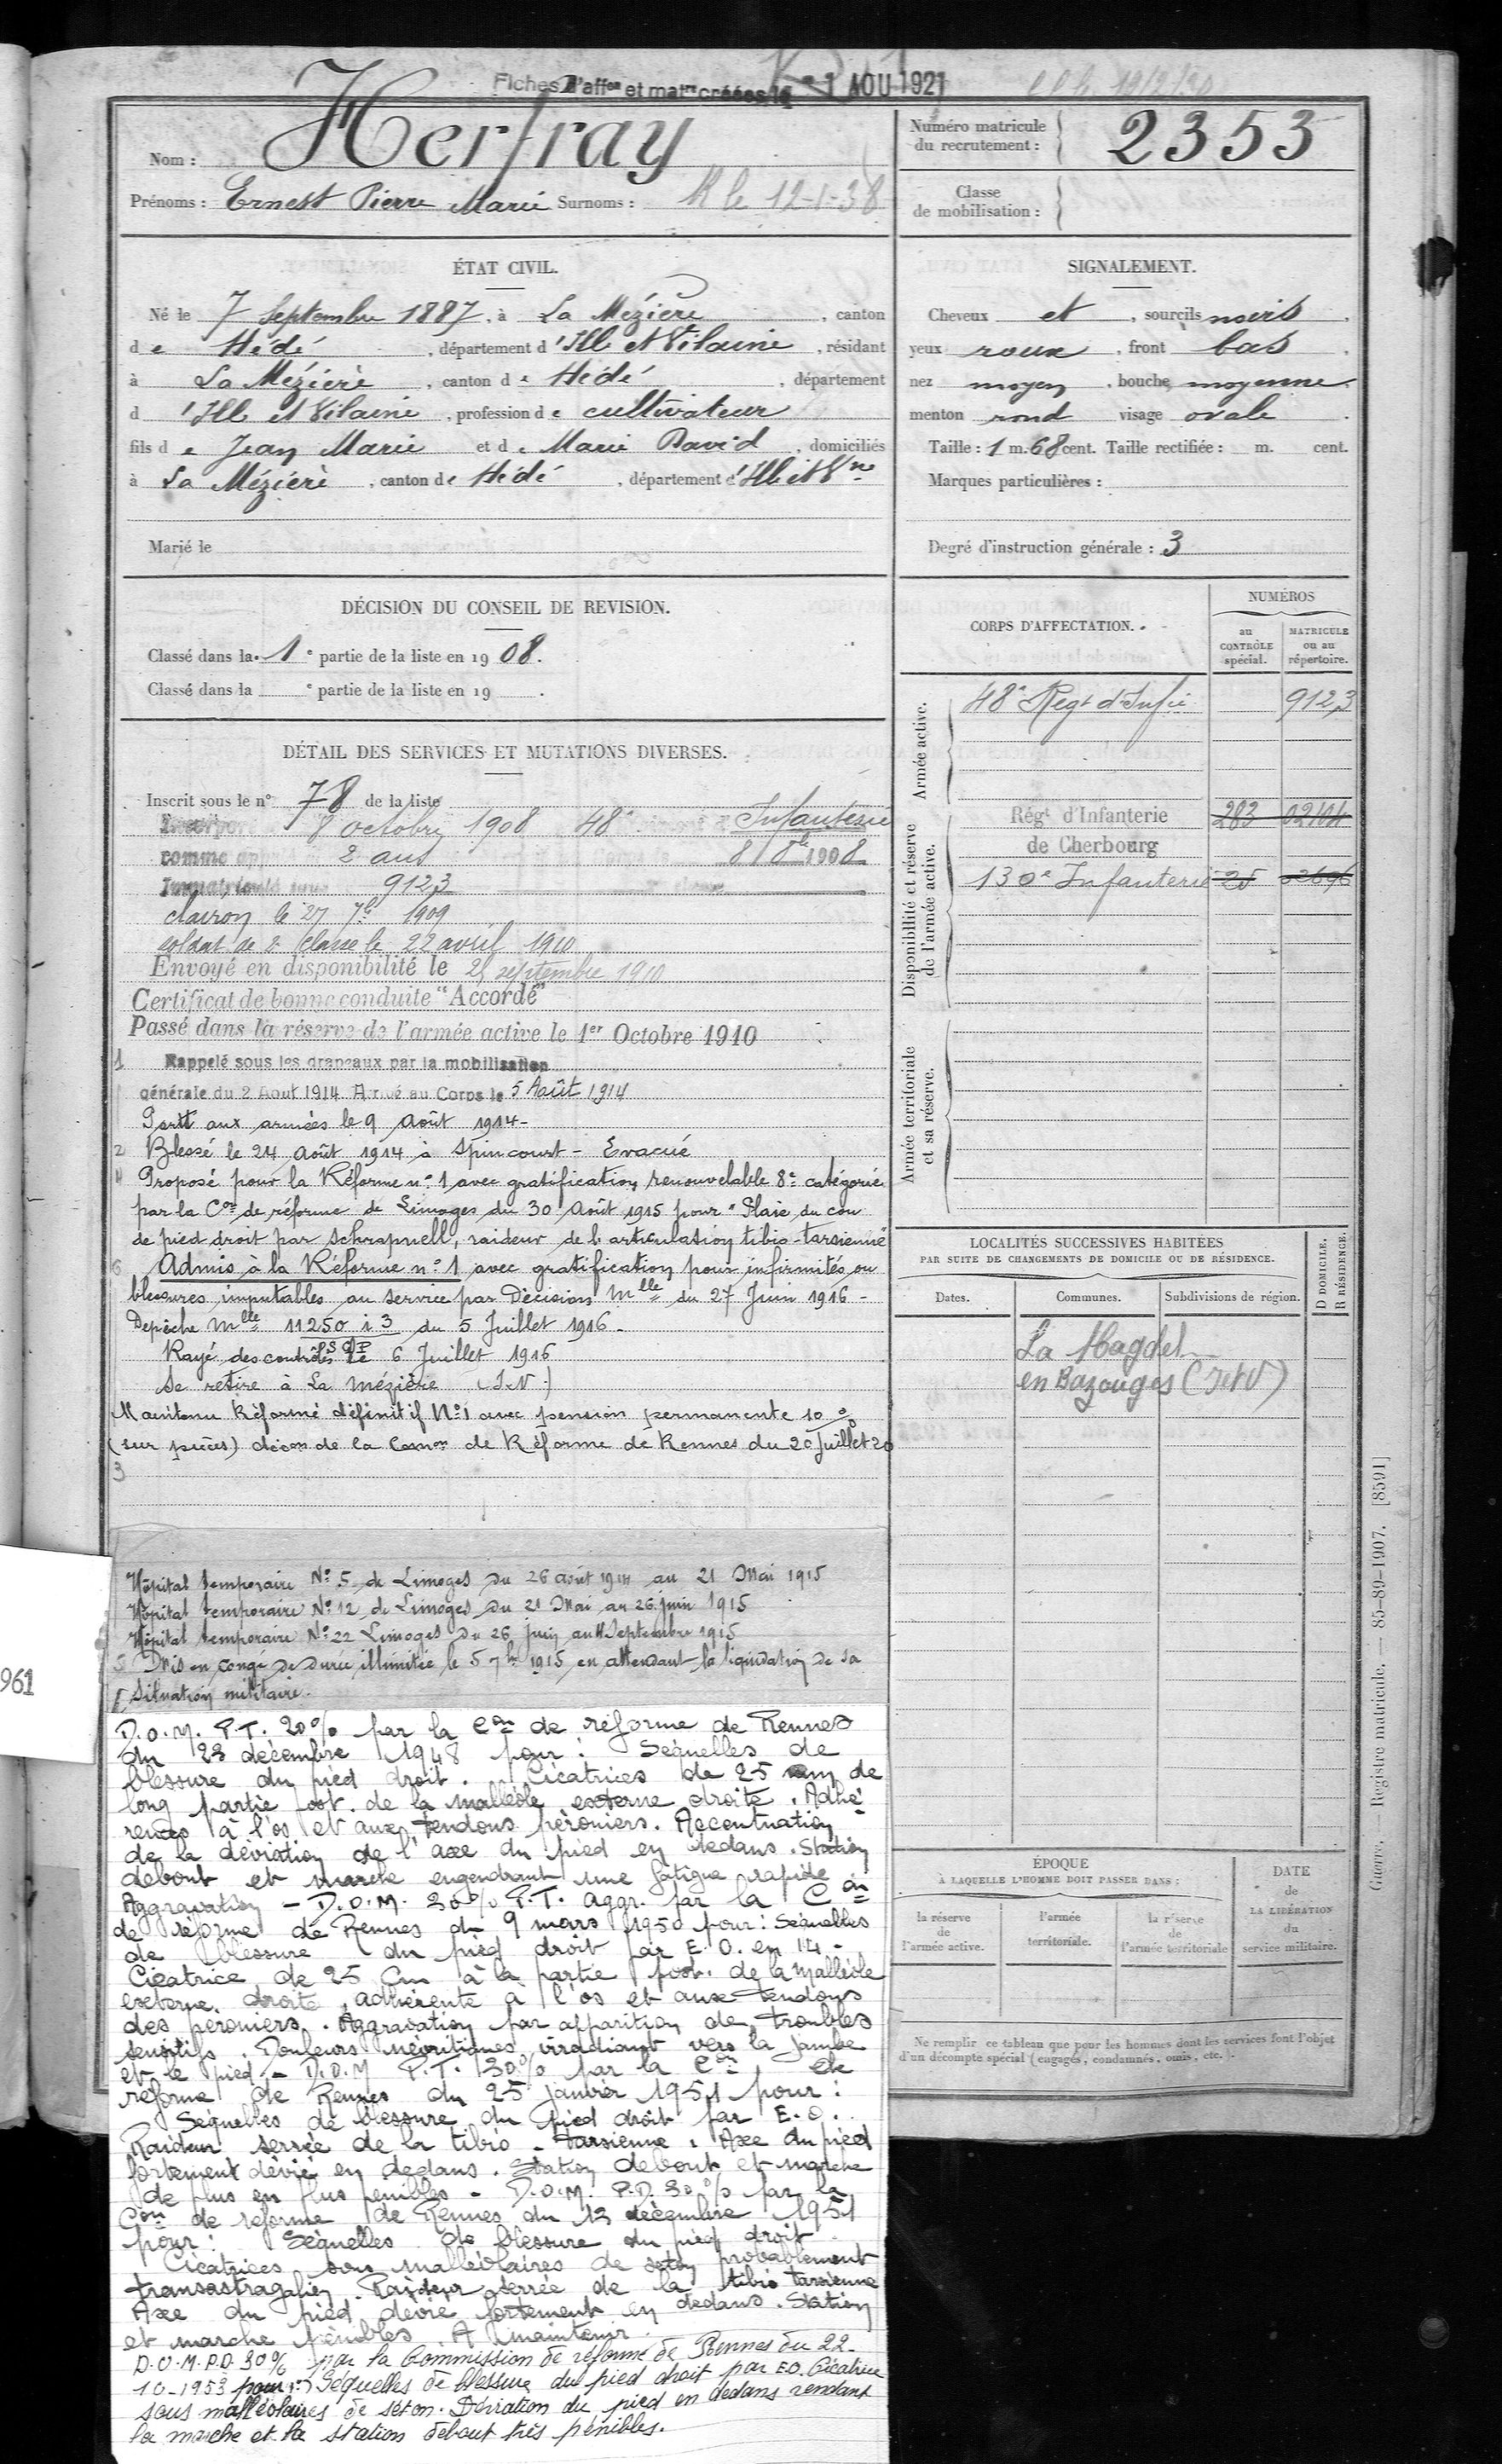 Fiches d'affon et matre créées le 1 AOU 1921
Nom : Herfray
Prénoms : Ernest Pierre Marie Surnoms : R le 12-1-38
Numéro matricule du recrutement : 2353
Classe de mobilisation :
ÉTAT CIVIL.
Né le 7 Septembre 1887, à La Mézière, canton
de Hédé, département d'Ille et Vilaine, résidant
à La Mézière, canton de Hédé, département
d'Ille et Vilaine, profession de cultivateur
fils de Jean Marie et de Marie David, domiciliés
à La Mézière, canton de Hédé, département d'Ille et Vne
Marié le
SIGNALEMENT.
Cheveux et, sourcils noirs,
yeux roux, front bas,
nez moyen, bouche moyenne,
menton rond visage ovale.
Taille : 1 m. 68 cent. Taille rectifiée : m. cent.
Marques particulières :
Degré d'instruction générale : 3
DÉCISION DU CONSEIL DE REVISION.
Classé dans la 1e partie de la liste en 1908.
Classé dans la e partie de la liste en 19 .
DÉTAIL DES SERVICES ET MUTATIONS DIVERSES.
Inscrit sous le n° 78 de la liste
8 octobre 1908 48e Infanterie
comme appelé 2 ans 8 8bre 1908
Immatriculé sous 9123
clairon le 27 7bre 1909
soldat de 2e classe le 22 avril 1910
Envoyé en disponibilité le 25 septembre 1910
Certificat de bonne conduite "Accordé"
Passé dans la réserve de l'armée active le 1er Octobre 1910
1 Rappelé sous les drapeaux par la mobilisation
générale du 2 Aout 1914. Arrivé au Corps le 5 Août 1914
Parti aux armées le 9 Août 1914-
2 Blessé le 24 août 1914 à Spincourt - Evacué
4 Proposé pour la Réforme n° 1 avec gratification renouvelable 8e catégorie
par la Con de réforme de Limoges du 30 Août 1915 pour "Plaie du cou
de pied droit par schrapnell, raideur de l'articulation tibio-tarsienne"
6 Admis à la Réforme n° 1 avec gratification pour infirmités ou
blessures imputables au service par Décision Mlle du 27 Juin 1916 -
Depêche Mlle 11250 i 3 S GP du 5 Juillet 1916 -
Rayé des contrôles le 6 Juillet 1916
Se retire à La Mézière (I-V)
Maintenu Réformé définitif N°1 avec pension permanente 10 %
(sur pièces) décon de la Comon de Réforme de Rennes du 20 Juillet 20
3
Hôpital temporaire N° 5 de Limoges du 26 août 1914 au 21 Mai 1915
Hôpital temporaire N° 12 de Limoges du 21 Mai au 26 juin 1915
Hôpital temporaire N° 22 Limoges du 26 juin au 4 Septembre 1915
5 Mis en congé de durée illimitée le 5 7bre 1915 en attendant la liquidation de sa
situation militaire.
961
D.O.M. P.T. 20% par la Con de réforme de Rennes
du 23 décembre 1948 pour : Séquelles de
blessure du pied droit. Cicatrices de 25 mm de
long partie post. de la malléole externe droite. Adhé
rences à l'os et aux tendons péroniers. Accentuation
de la déviation de l'axe du pied en dedans. Station
debout et marche engendrant une fatigue rapide
Aggravation - D.O.M. 30% P.T. aggr. par la Con
de réforme de Rennes du 9 mars 1950 pour : Séquelles
de blessure du pied droit par E.O. en 14 -
Cicatrice de 25 cm à la partie post. de la malléole
externe droite, adhérente à l'os et aux tendons
des péroniers. Aggravation par apparition de troubles
sensitifs. Douleurs névritiques irradiant vers la jambe
et le pied - D.O.M P.T. 30% par la Con de
réforme de Rennes du 25 janvier 1951 pour :
Séquelles de blessure du pied droit par E.O.
Raideur serrée de la tibio-tarsienne. Axe du pied
fortement dévié en dedans. Station debout et marche
de plus en plus pénibles - D.O.M. P.D. 30% par la
Con de réforme de Rennes du 13 décembre 1951
pour : Séquelles de blessure du pied droit
Cicatrices sous malléolaires de séton probablement
transastragalien. Raideur serrée de la tibio tarsienne
Axe du pied dévié fortement en dedans. Station
et marche pénibles. A maintenir.
D.O.M.P.D. 30% par la Commission de réforme de Rennes du 22-
10-1953 pour : Séquelles de blessure du pied droit par E.O. Cicatrice
sous malléolaires de séton. Déviation du pied en dedans rendant
la marche et la station debout très pénibles.
CORPS D'AFFECTATION.
NUMÉROS
au CONTRÔLE spécial.
MATRICULE ou au répertoire.
Armée active.
48e Regt d'Infie 9123
Disponibilité et réserve de l'armée active.
Régt d'Infanterie 283 02104
de Cherbourg
130e Infanterie 25 02696
Armée territoriale et sa réserve.
LOCALITÉS SUCCESSIVES HABITÉES
PAR SUITE DE CHANGEMENTS DE DOMICILE OU DE RÉSIDENCE.
D DOMICILE.
R RÉSIDENCE.
Dates. Communes. Subdivisions de région.
La Magdel
en Bazouges (I et V)
ÉPOQUE
À LAQUELLE L'HOMME DOIT PASSER DANS :
la réserve de l'armée active.
l'armée territoriale.
la réserve de l'armée territoriale
DATE de LA LIBÉRATION du service militaire.
Ne remplir ce tableau que pour les hommes dont les services font l'objet
d'un décompte spécial (engagés, condamnés, omis, etc.).
Guerre. Registre matricule. — 85-89-1907. [8591]